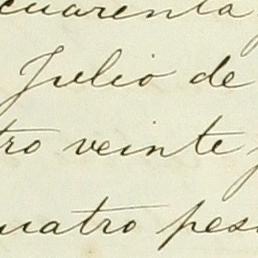 cuarenta
Julio de
tro veinte
uatro pes